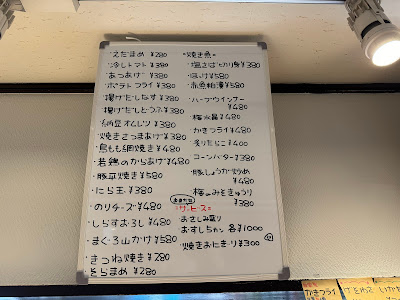 ・えだまめ ¥280
・冷しトマト ¥380
・あつあげ ¥380
・ポテトフライ ¥380
・揚げだしなす ¥380
・揚げだしとうふ ¥380
・納豆オムレツ ¥380
・焼きさつまあげ ¥380
・鳥もも網焼き ¥480
・若鶏のからあげ ¥480
・豚平焼き ¥580
・にら玉 ¥380
・のりチーズ ¥480
・しらすおろし ¥480
・まぐろ山かけ ¥580
・きつね焼き ¥280
・そらまめ ¥280
・焼き魚・
・塩さば ¥380
・ほっけ ¥580
・赤魚粕漬 ¥580
・ハーブウインナー ¥480
・梅水晶 ¥480
・かきフライ ¥480
・炙りたらこ ¥400
・コーンバター ¥380
・豚しょうが炒め ¥480
・梅しみそきゅうり ¥380
サービス
・おさしみ盛り
・おすしちゃん 各¥1000
・焼きおにぎり ¥300
かきフライ